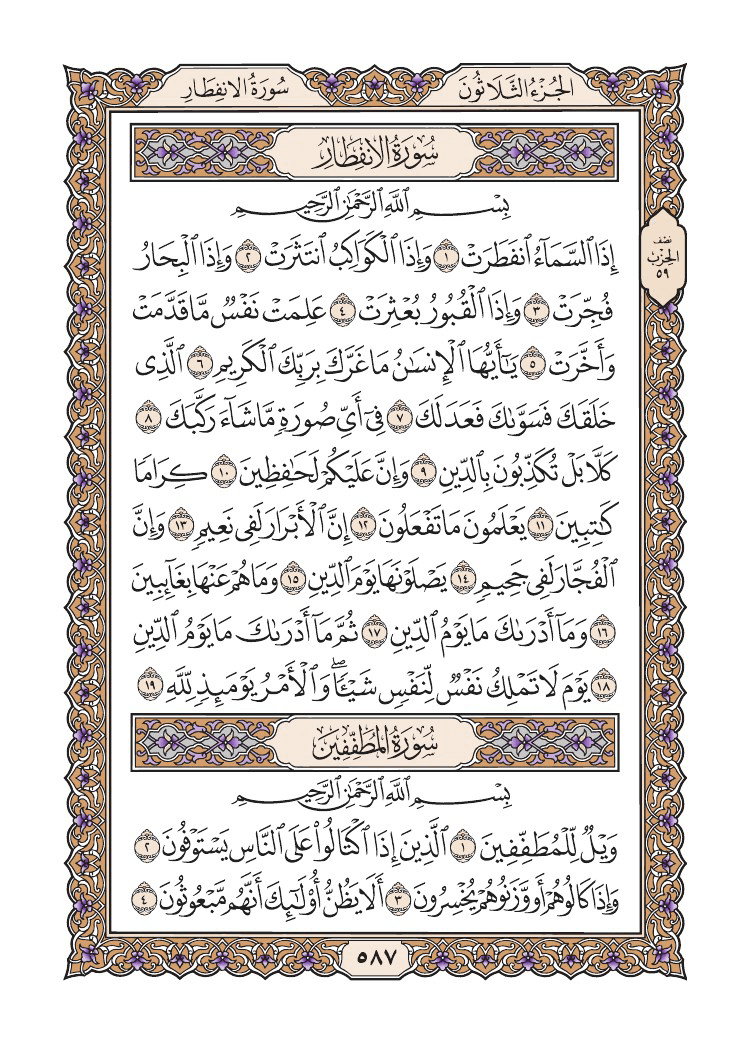 سُورَةُ الانفِطَارِ
الجُزْءُ الثَّلَاثُونَ
سُورَةُ الانفِطَارِ
بِسْمِ ٱللَّهِ ٱلرَّحْمَٰنِ ٱلرَّحِيمِ
إِذَا ٱلسَّمَآءُ ٱنفَطَرَتْ ١ وَإِذَا ٱلْكَوَاكِبُ ٱنتَثَرَتْ ٢ وَإِذَا ٱلْبِحَارُ
نصف
الحزب
٥٩
فُجِّرَتْ ٣ وَإِذَا ٱلْقُبُورُ بُعْثِرَتْ ٤ عَلِمَتْ نَفْسٌ مَّا قَدَّمَتْ
وَأَخَّرَتْ ٥ يَٰٓأَيُّهَا ٱلْإِنسَٰنُ مَا غَرَّكَ بِرَبِّكَ ٱلْكَرِيمِ ٦ ٱلَّذِى
خَلَقَكَ فَسَوَّىٰكَ فَعَدَلَكَ ٧ فِىٓ أَىِّ صُورَةٍ مَّا شَآءَ رَكَّبَكَ ٨
كَلَّا بَلْ تُكَذِّبُونَ بِٱلدِّينِ ٩ وَإِنَّ عَلَيْكُمْ لَحَٰفِظِينَ ١٠ كِرَامًا
كَٰتِبِينَ ١١ يَعْلَمُونَ مَا تَفْعَلُونَ ١٢ إِنَّ ٱلْأَبْرَارَ لَفِى نَعِيمٍ ١٣ وَإِنَّ
ٱلْفُجَّارَ لَفِى جَحِيمٍ ١٤ يَصْلَوْنَهَا يَوْمَ ٱلدِّينِ ١٥ وَمَا هُمْ عَنْهَا بِغَآئِبِينَ
١٦ وَمَآ أَدْرَىٰكَ مَا يَوْمُ ٱلدِّينِ ١٧ ثُمَّ مَآ أَدْرَىٰكَ مَا يَوْمُ ٱلدِّينِ
١٨ يَوْمَ لَا تَمْلِكُ نَفْسٌ لِّنَفْسٍ شَيْـًٔا ۖ وَٱلْأَمْرُ يَوْمَئِذٍ لِّلَّهِ ١٩
سُورَةُ المُطَفِّفِينَ
بِسْمِ ٱللَّهِ ٱلرَّحْمَٰنِ ٱلرَّحِيمِ
وَيْلٌ لِّلْمُطَفِّفِينَ ١ ٱلَّذِينَ إِذَا ٱكْتَالُوا۟ عَلَى ٱلنَّاسِ يَسْتَوْفُونَ ٢
وَإِذَا كَالُوهُمْ أَو وَّزَنُوهُمْ يُخْسِرُونَ ٣ أَلَا يَظُنُّ أُو۟لَٰٓئِكَ أَنَّهُم مَّبْعُوثُونَ ٤
٥٨٧